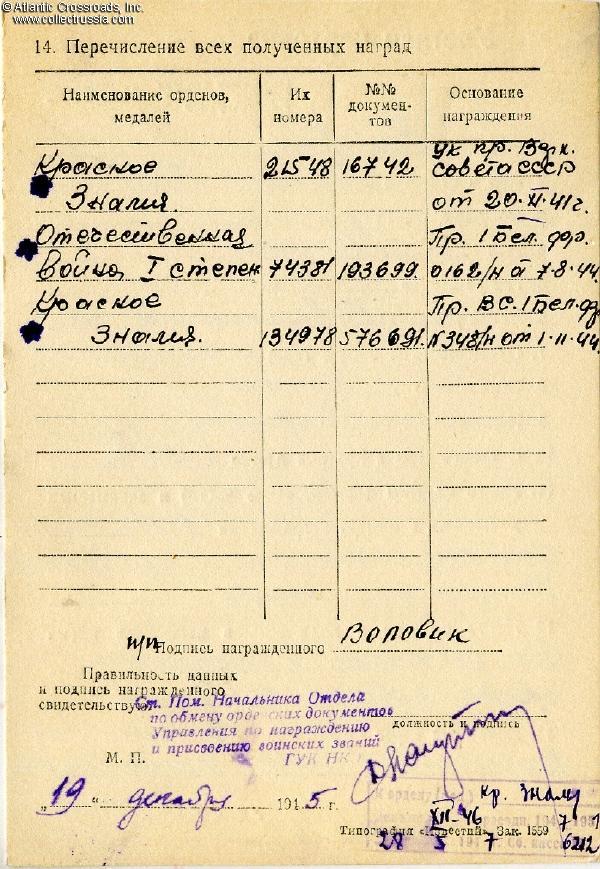 © Atlantic Crossroads, Inc.
www.collectrussia.com
14. Перечисление всех полученных наград
Наименование орденов, медалей
Их номера
№№ докумен- тов
Основание награждения
Ук. пр. Верх.
Красное 21548 16742 совета СССР
Знамя. от 20.XI.41г.
Отечественная Пр. 1 Бел. фр.
война I степен 74381 193699 0162/н от 7.8.44.
Красное Пр. ВС. 1 Бел. фр.
Знамя. 134978 576691. №348/н от 1.11.44.
п/п Подпись награжденного Воловик
Правильность данных
и подпись награжденного
свидетельствую:
Ст. Пом. Начальника Отдела
по обмену орденских документов
Управления по награждению
и присвоению воинских званий
ГУК НК
должность и подпись
М. П.
„19“ декабря 1945 г.
Кр. Знамя
XII-46
Типография «Известий». Зак. 1559
28 5 7